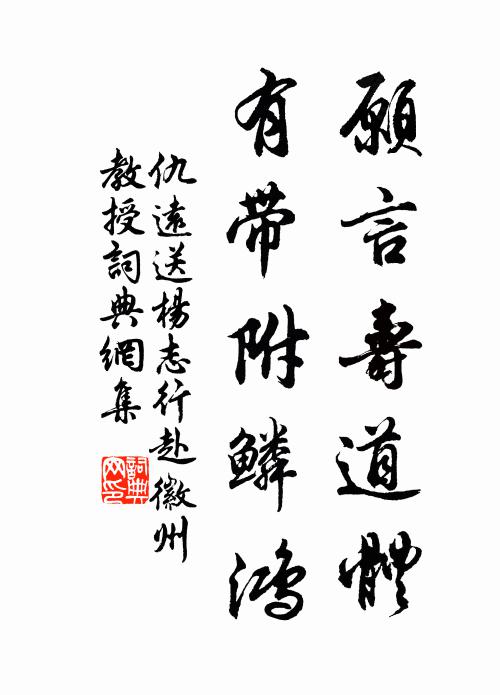 願言壽道體
有帶附鱗鴻
仇遠送楊志行赴徽州
教授詞典網集
詞典网印